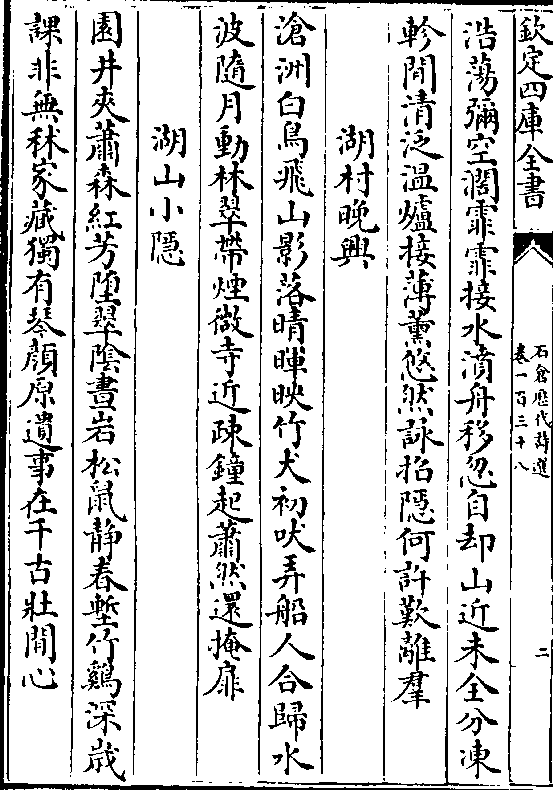 欽定四庫全書
石倉歷代詩選
卷一百三十八
二
浩蕩彌空濶霏霏接水濆舟移忽自却山近未全分凍
軫閒清泛溫爐接薄薰悠然詠招隱何許歎離羣
湖村晚興
滄洲白鳥飛山影落晴暉映竹犬初吠弄船人合歸水
波隨月動林翠帶煙微寺近疎鐘起蕭然還掩扉
湖山小隱
園井夾蕭森紅芳墮翠陰晝岩松鼠静春塹竹鷄深歳
課非無秫家藏獨有琴顔原遺事在千古壯閒心